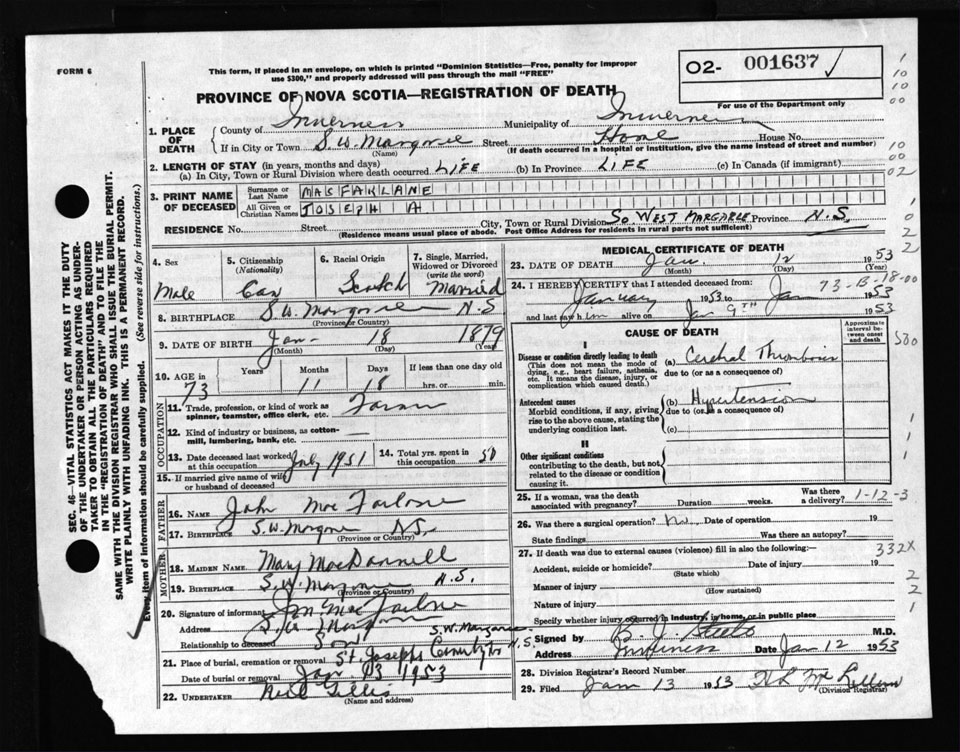 FORM 6
This form, if placed in an envelope, on which is printed "Dominion Statistics—Free, penalty for improper
use $300," and properly addressed will pass through the mail "FREE"
O2- 001637 ✓
For use of the Department only
PROVINCE OF NOVA SCOTIA—REGISTRATION OF DEATH
1. PLACE OF DEATH
County of Inverness Municipality of Inverness
If in City or Town S.W. Margaree Street Home House No.
(Name) (If death occurred in a hospital or institution, give the name instead of street and number)
2. LENGTH OF STAY (in years, months and days)
(a) In City, Town or Rural Division where death occurred LIFE (b) In Province LIFE (c) In Canada (if immigrant)
3. PRINT NAME OF DECEASED
Surname or Last Name MACFARLANE
All Given or Christian Names JOSEPH A
RESIDENCE No. Street City, Town or Rural Division So WEST MARGAREE Province N.S.
(Residence means usual place of abode. Post Office Address for residents in rural parts not sufficient)
4. Sex Male
5. Citizenship (Nationality) Can
6. Racial Origin Scotch
7. Single, Married, Widowed or Divorced (write the word) Married
8. BIRTHPLACE S.W. Margaree N.S
(Province or Country)
9. DATE OF BIRTH Jan- 18 1879
(Month) (Day) (Year)
10. AGE in Years Months Days If less than one day old
73 11 18 hrs. or min.
OCCUPATION
11. Trade, profession, or kind of work as spinner, teamster, office clerk, etc. Farmer
12. Kind of industry or business, as cotton-mill, lumbering, bank, etc.
13. Date deceased last worked at this occupation July 1951
14. Total yrs. spent in this occupation 50
15. If married give name of wife or husband of deceased
FATHER
16. NAME John Mac Farlane
17. BIRTHPLACE S.W. Margaree N.S.
(Province or Country)
MOTHER
18. MAIDEN NAME Mary MacDonnell
19. BIRTHPLACE S.W. Margaree N.S.
(Province or Country)
20. Signature of informant Mac Farlane
Address S.W. Margaree
Relationship to deceased Son S.W. Margaree
21. Place of burial, cremation or removal St. Josephs Cemetery N.S.
Date of burial or removal Jan. 13 1953
22. UNDERTAKER Neil Gillis
MEDICAL CERTIFICATE OF DEATH
23. DATE OF DEATH Jan. 12 1953
(Month) (Day) (Year)
24. I HEREBY CERTIFY that I attended deceased from:
73-B-18-00
January 1953 to Jan 1953
and last saw him alive on Jan 9TH 1953
CAUSE OF DEATH
Approximate interval between onset and death
I
Disease or condition directly leading to death
(This does not mean the mode of dying, e.g., heart failure, asthenia, etc. It means the disease, injury, or complication which caused death.)
(a) Cerebral Thrombosis
due to (or as a consequence of)
Antecedent causes
Morbid conditions, if any, giving rise to the above cause, stating the underlying condition last.
(b) Hypertension
due to (or as a consequence of)
(c)
II
Other significant conditions
contributing to the death, but not related to the disease or condition causing it.
25. If a woman, was the death associated with pregnancy? Duration weeks. Was there a delivery? 1-12-3
26. Was there a surgical operation? No. Date of operation 19
State findings Was there an autopsy?
27. If death was due to external causes (violence) fill in also the following:— 332X
Accident, suicide or homicide? Date of injury 19
(State which)
Manner of injury
(How sustained)
Nature of injury
Specify whether injury occurred in industry, in home, or in public place
Signed by M.D.
Address Inverness Date Jan 12 1953
28. Division Registrar's Record Number
29. Filed Jan 13 1953
(Division Registrar)
SEC. 46—VITAL STATISTICS ACT MAKES IT THE DUTY
OF THE UNDERTAKER OR PERSON ACTING AS UNDER-
TAKER TO OBTAIN ALL THE PARTICULARS REQUIRED
IN THE "REGISTRATION OF DEATH" AND TO FILE THE
SAME WITH THE DIVISION REGISTRAR WHO SHALL ISSUE THE BURIAL PERMIT.
WRITE PLAINLY WITH UNFADING INK. THIS IS A PERMANENT RECORD.
Every item of information should be carefully supplied. (See reverse side for instructions.)